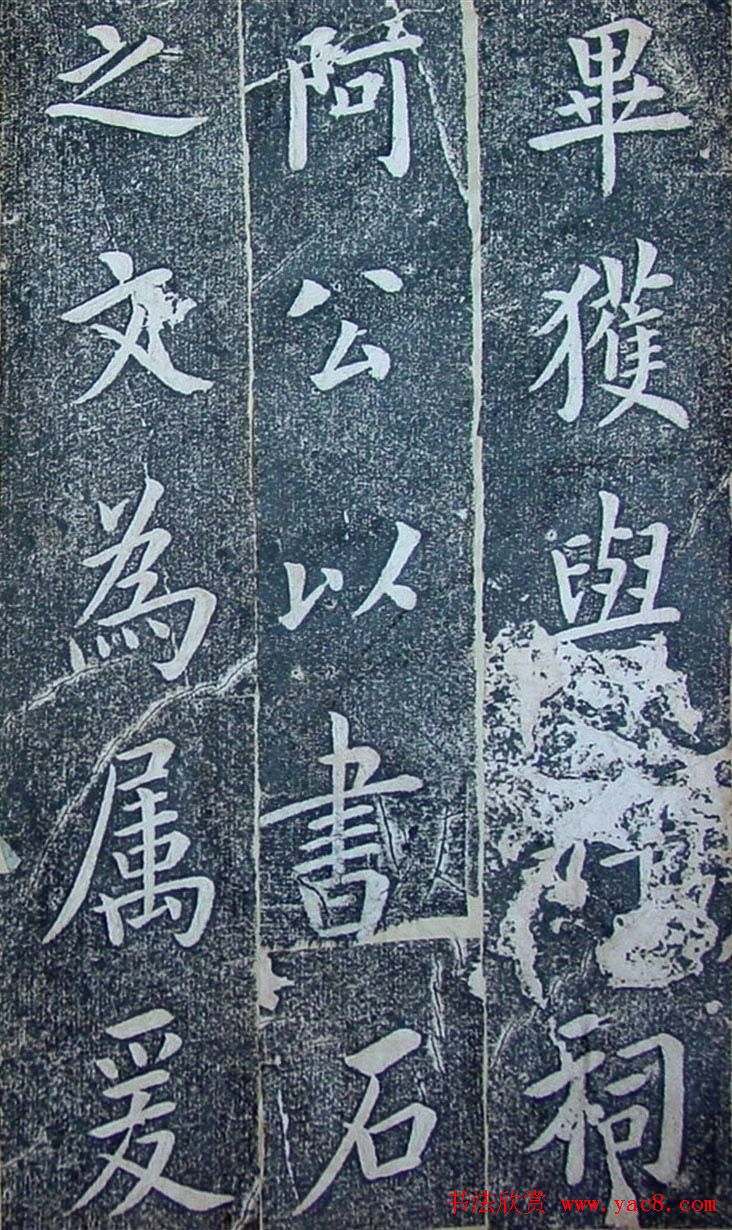 畢獲與祠
阿公以書石
之文為属爰
书法欣赏 www.yac8.com